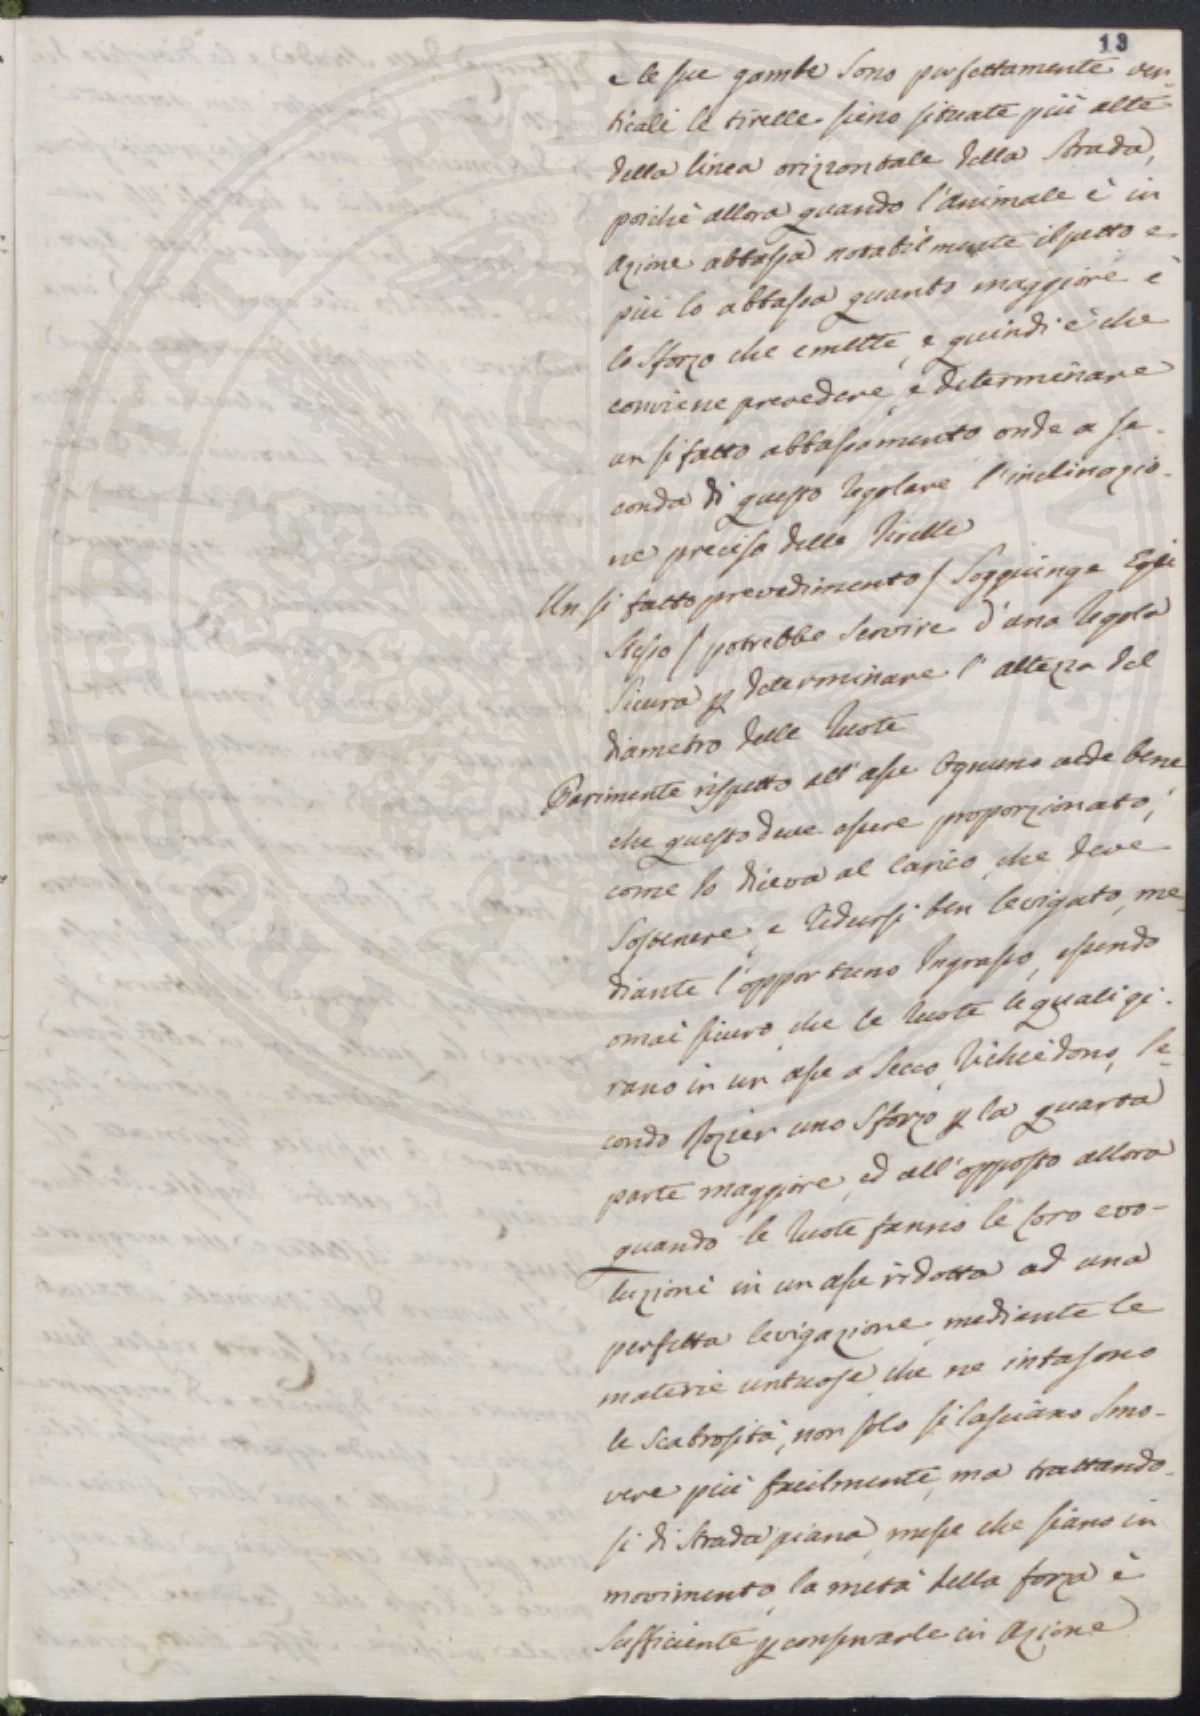 13
e le sue gambe sono perfettamente ver-
ticali le tirelle sieno situate più alte
della linea orizzontale della Strada,
poichè allora quando l'animale è in
Azione abbassa notabilmente il petto e
più lo abbassa quanto maggiore è
lo Sforzo che emette, e quindi è che
conviene prevedere, e determinare
un si fatto abbassamento onde a se-
conda di questo regolare l'inclinazio-
ne precisa delle Tirelle
Un si fatto prevedimento / Soggiunge Egli
stesso / potrebbe servire d'una regola
sicura p determinare l'altezza del
diametro delle Ruote
Parimente rispetto all'asse Ognuno vede bene
che questo deve essere proporzionato,
come lo diceva al carico che deve
Sostenere, e ridursi ben levigato, me-
diante l'opportuno Ingrasso, essendo
omai sicuro che le Ruote le quali gi-
rano in un asse a secco, richiedono, se-
condo Rozier uno Sforzo p la quarta
parte maggiore, ed all'opposto allora
quando le Ruote fanno le loro evo-
luzioni in un asse ridotta ad una
perfetta levigazione, mediante le
materie untuose, che ne intasono
le scabrosità, non solo si lasciano smo-
vere più facilmente, ma trattando-
si di Strada piana, messe che siano in
movimento, la metà della forza è
Sufficiente p conservarle in Azione
PROSPERITATI PUBLICAE